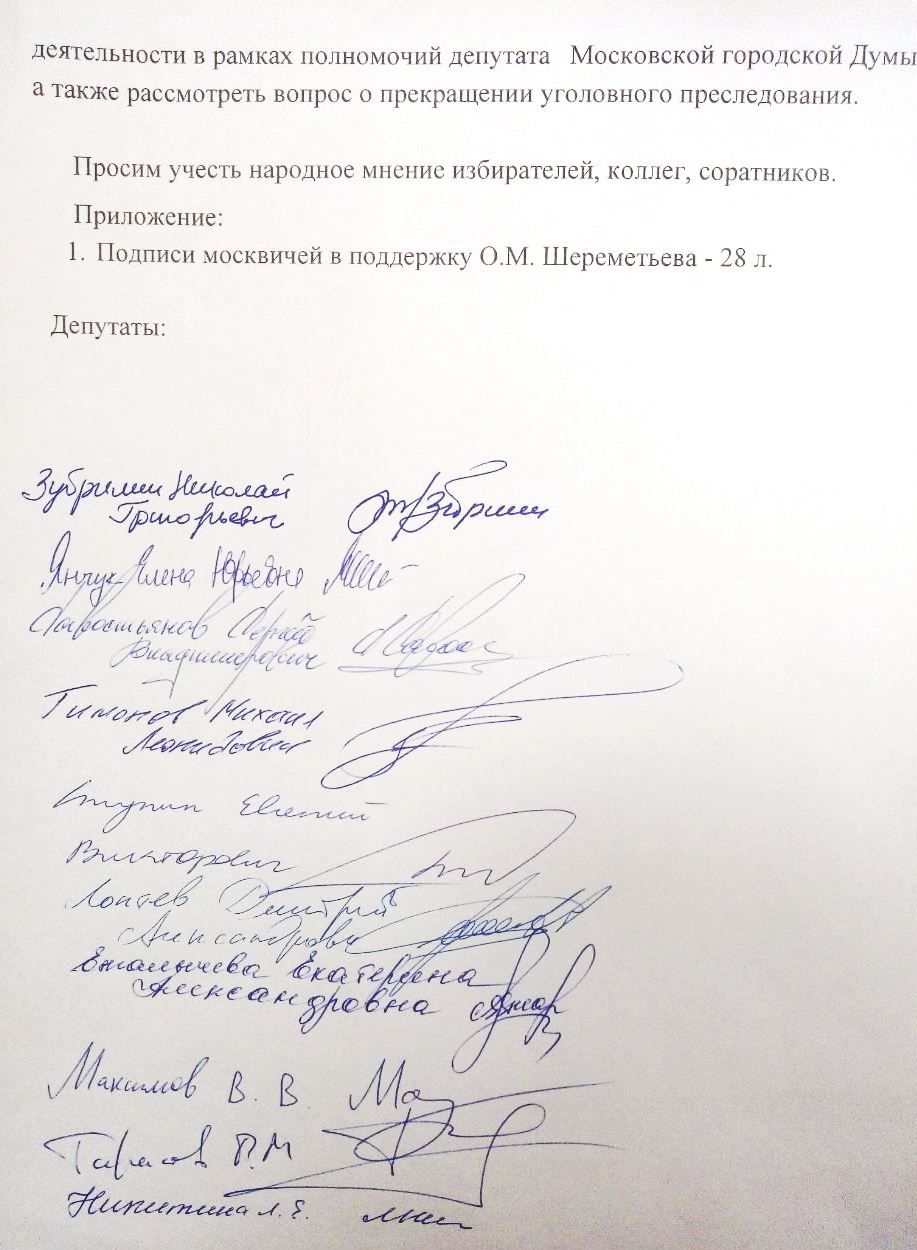 деятельности в рамках полномочий депутата Московской городской Думы
а также рассмотреть вопрос о прекращении уголовного преследования.
Просим учесть народное мнение избирателей, коллег, соратников.
Приложение:
1. Подписи москвичей в поддержку О.М. Шереметьева - 28 л.
Депутаты:
Зубрилин Николай
Григорьевич
Янчук Елена Юрьевна
Савостьянов Сергей
Владимирович
Тимонов Михаил
Леонидович
Ступин Евгений
Викторович
Локтев Дмитрий
Енгалычева Екатерина
Александровна
Максимов В. В.
Тарасов П.М
Никитина Л. Е.